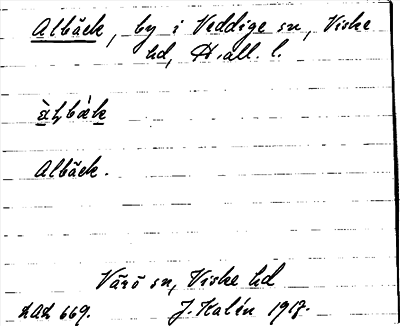 Albäck, by i Veddige sn, Viske
hd, Hall. l.
Albäck.
Värö sn, Viske hd
669. J. Kalén 1917.